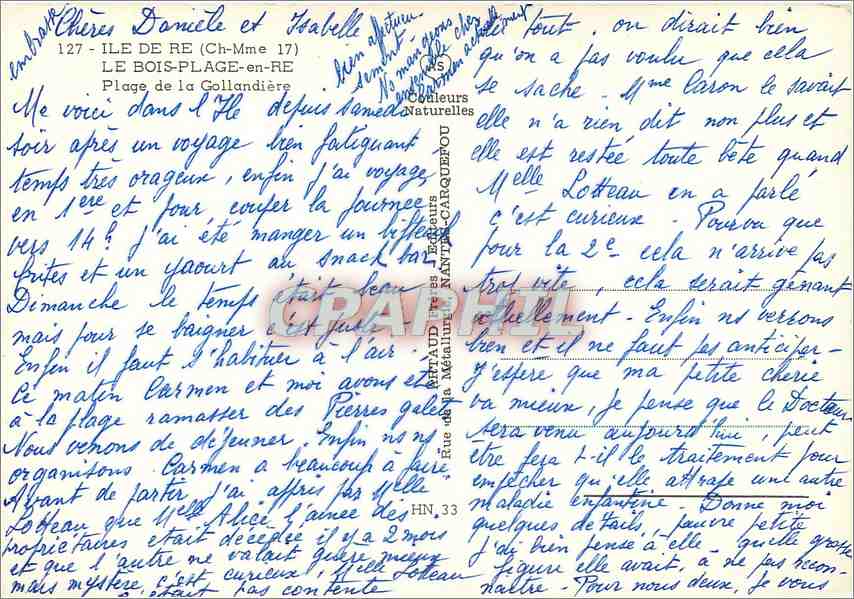 Chères Danièle et Isabelle
127 - ILE DE RE (Ch-Mme 17)
LE BOIS-PLAGE-en-RE
Plage de la Gollandière
Me voici dans l'Ile depuis samedi
soir après un voyage bien fatiguant
temps très orageux, enfin j'ai voyagé
en 1ère et pour couper la journée
vers 14h j'ai été manger un bifteack
frites et un yaourt au snack bar
Dimanche le temps était beau
mais pour se baigner c'est juste
Enfin il faut s'habituer à l'air -
Ce matin Carmen et moi avons été
à la plage ramasser des Pierres galets
Nous venons de déjeuner. Enfin ns ns
organisons. Carmen a beaucoup à faire
Avant de partir j'ai appris par Melle
Lotteau que Melle Alice l'ainée des
propriétaires était décédée il y a 2 mois
et que l'autre ne valait guère mieux
mais mystère, c'est curieux, Melle Lotteau
était pas contente
RS
Couleurs
Naturelles
ARTAUD Frères - Editeurs
Rue de la Métallurgie NANTES-CARQUEFOU
HN 33
CPAPHIL
du tout. on dirait bien
qu'on a pas voulu que cela
se sache - Mme Caron le savait
elle n'a rien dit non plus et
elle est restée toute bête quand
Melle Lotteau en a parlé
c'est curieux. Pourvu que
pour la 2e cela n'arrive pas
trop vite, cela serait gênant
actuellement - Enfin ns verrons
bien et il ne faut pas anticiper -
J'espère que ma petite chérie
va mieux, je pense que le Docteur
sera venu aujourd'hui, peut
être fera t-il le traitement pour
empêcher qu'elle attrape une autre
maladie enfantine - Donne moi
quelques détails, pauvre petite
j'ai bien pensé à elle - quelle grosse
figure elle avait, à ne pas recon-
naître - Pour nous deux, je vous
embrasse
bien affectueu-
sement -
Ns mangeons
ensemble chez
Carmen actuellement